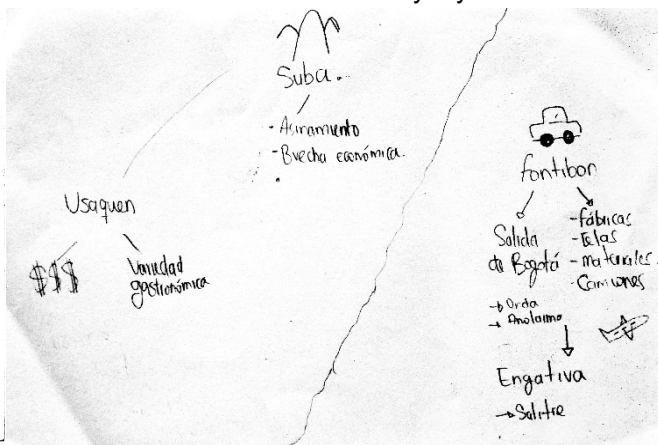 Suba.
- Acinamiento
- Brecha económica.
Usaquen
$$$
Variedad
gastronómica
fontibon
Salida
de Bogotá
-fábricas
-telas
-materiales
-Camiones
→ Anolaima
Engativa
→ Salitre